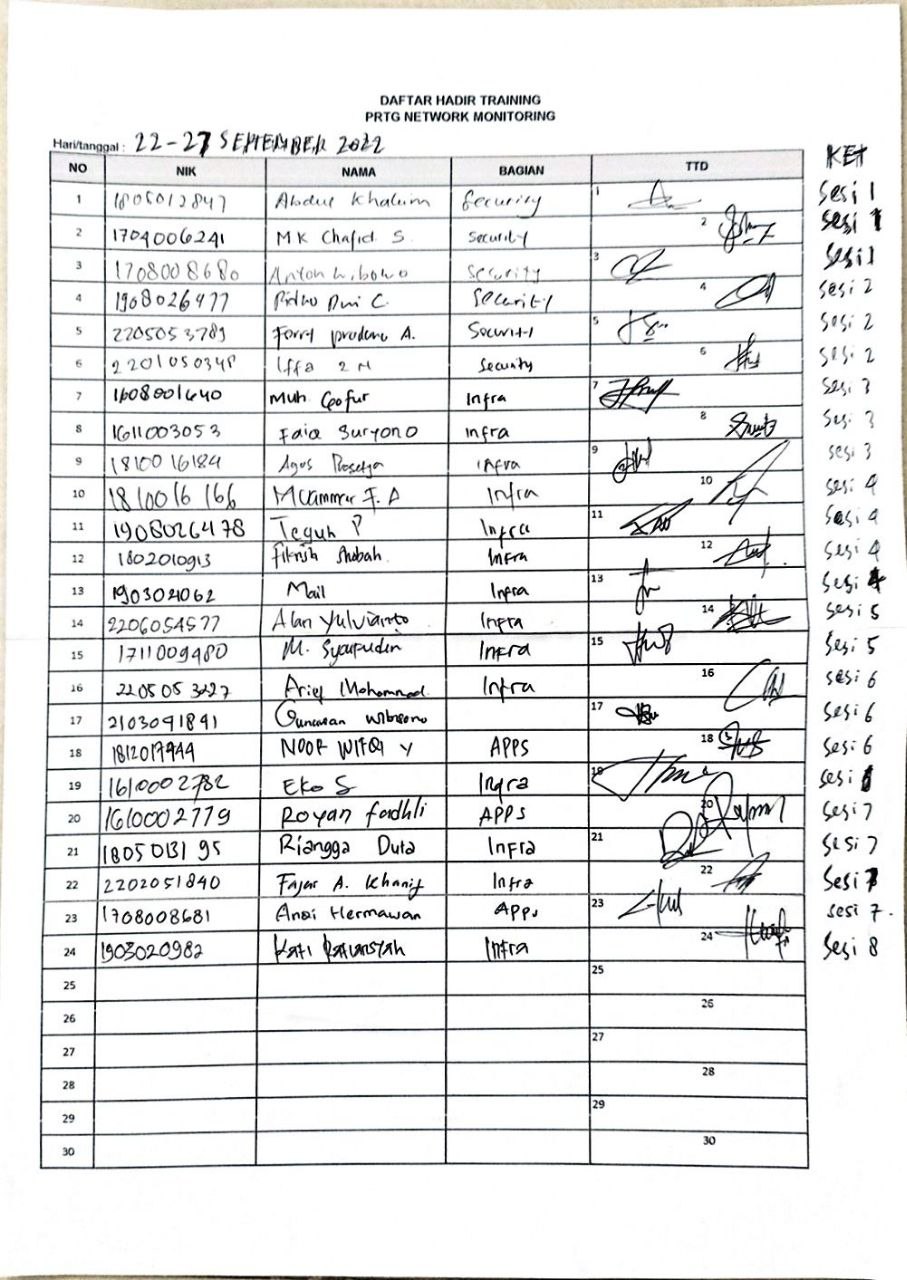 DAFTAR HADIR TRAINING
PRTG NETWORK MONITORING
Hari/tanggal : 22-27 SEPTEMBER 2022
NO NIK NAMA BAGIAN TTD KET
1 1805012847 Abdul Khalim Security 1 Sesi 1
2 1704006241 MK Chafid S. Security 2 Sesi 1
3 1708008680 Anton Wibowo Security 3 Sesi 1
4 1908026477 Ridho Dwi C. Security 4 Sesi 2
5 2205053789 Ferry A. Security 5 Sesi 2
6 2201050348 Security 6 Sesi 2
7 1608001640 Muh Gofur Infra 7 Sesi 3
8 1611003053 Faiq Suryono Infra 8 Sesi 3
9 1810016184 Agus Prasetya Infra 9 Sesi 3
10 1810016166 Muammar F. A Infra 10 Sesi 4
11 1908026478 Teguh P Infra 11 Sesi 4
12 1802010913 Fitrih Shobah Infra 12 Sesi 4
13 Mail Infra 13 Sesi 4
14 2206054577 Alan Yulvianto Infra 14 Sesi 5
15 1711009480 M. Syarifudin Infra 15 Sesi 5
16 Arief Mohammad Infra 16 Sesi 6
17 2103041841 Gunawan Wibisono 17 Sesi 6
18 NOOR WIFQI Y APPS 18 Sesi 6
19 1610002782 Eko S Infra 19 Sesi
20 1610002779 Royan Fadhli APPS 20 Sesi 7
21 1805013195 Riangga Duta Infra 21 Sesi 7
22 2202051840 Fajar A. Khanif Infra 22 Sesi 7
23 1708008681 Andi Hermawan Apps 23 Sesi 7.
24 1903020982 Infra 24 Sesi 8
25 25
26 26
27 27
28 28
29 29
30 30